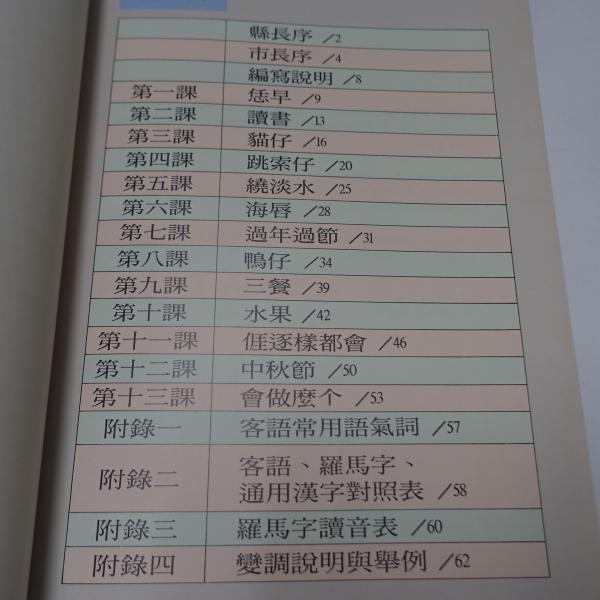 縣長序 /2
市長序 /4
編寫說明 /8
第一課 恁早 /9
第二課 讀書 /13
第三課 貓仔 /16
第四課 跳索仔 /20
第五課 繞淡水 /25
第六課 海唇 /28
第七課 過年過節 /31
第八課 鴨仔 /34
第九課 三餐 /39
第十課 水果 /42
第十一課 𠊎逐樣都會 /46
第十二課 中秋節 /50
第十三課 會做麼个 /53
附錄一 客語常用語氣詞 /57
附錄二 客語、羅馬字、
通用漢字對照表 /58
附錄三 羅馬字讀音表 /60
附錄四 變調說明與舉例 /62